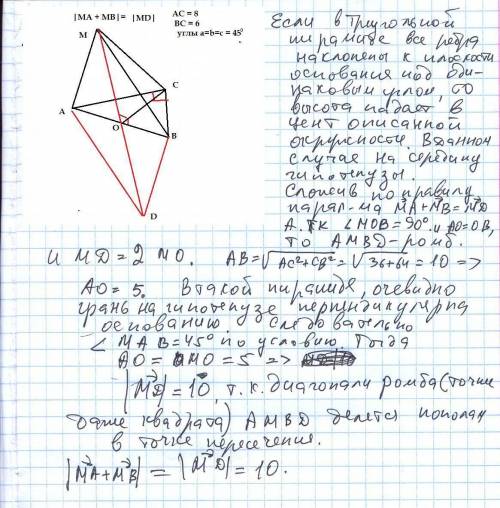 |MA + MB| = |MD|
AC = 8
BC = 6
углы a=b=c = 45⁰
M
A
C
O
B
D
Если в треугольной
пирамиде все ребра
наклонены к плоскости
основания под оди-
наковым углом, то
высота падает в
цент описанной
окружности. В данном
случае на середину
гипотенузы.
Сложив по правилу
парал-ма MA+MB=MD
А т.к ∠MOB=90°. и AO=OB,
то AMBD-ромб.
и MD=2 MO. AB=√AC²+CB²=√36+64=10 =>
AO=5. В такой пирамиде, очевидно
грань на гипотенузе перпендикулярна
основанию. Следовательно
∠ MAB=45° по условию. Тогда
AO = MO = 5 =>
|MD|=10, т.к. диагонали ромба (точнее
даже квадрата) AMBD делятся пополам
в точке пересечения.
|MA+MB|=|MD|=10.